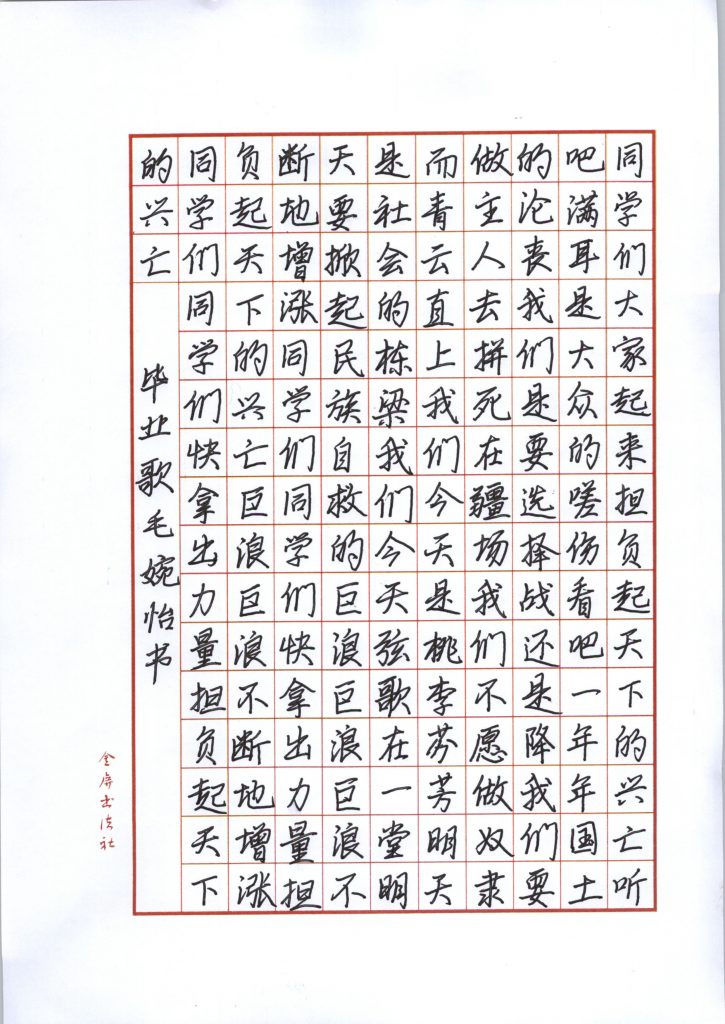 同学们大家起来担负起天下的兴亡听
吧满耳是大众的嗟伤看吧一年年国土
的沦丧我们是要选择战还是降我们要
做主人去拼死在疆场我们不愿做奴隶
而青云直上我们今天是桃李芬芳明天
是社会的栋梁我们今天弦歌在一堂明
天要掀起民族自救的巨浪巨浪巨浪不
断地增涨同学们同学们快拿出力量担
负起天下的兴亡巨浪巨浪不断地增涨
同学们同学们快拿出力量担负起天下
的兴亡
毕业歌毛婉怡书
金屏书法社